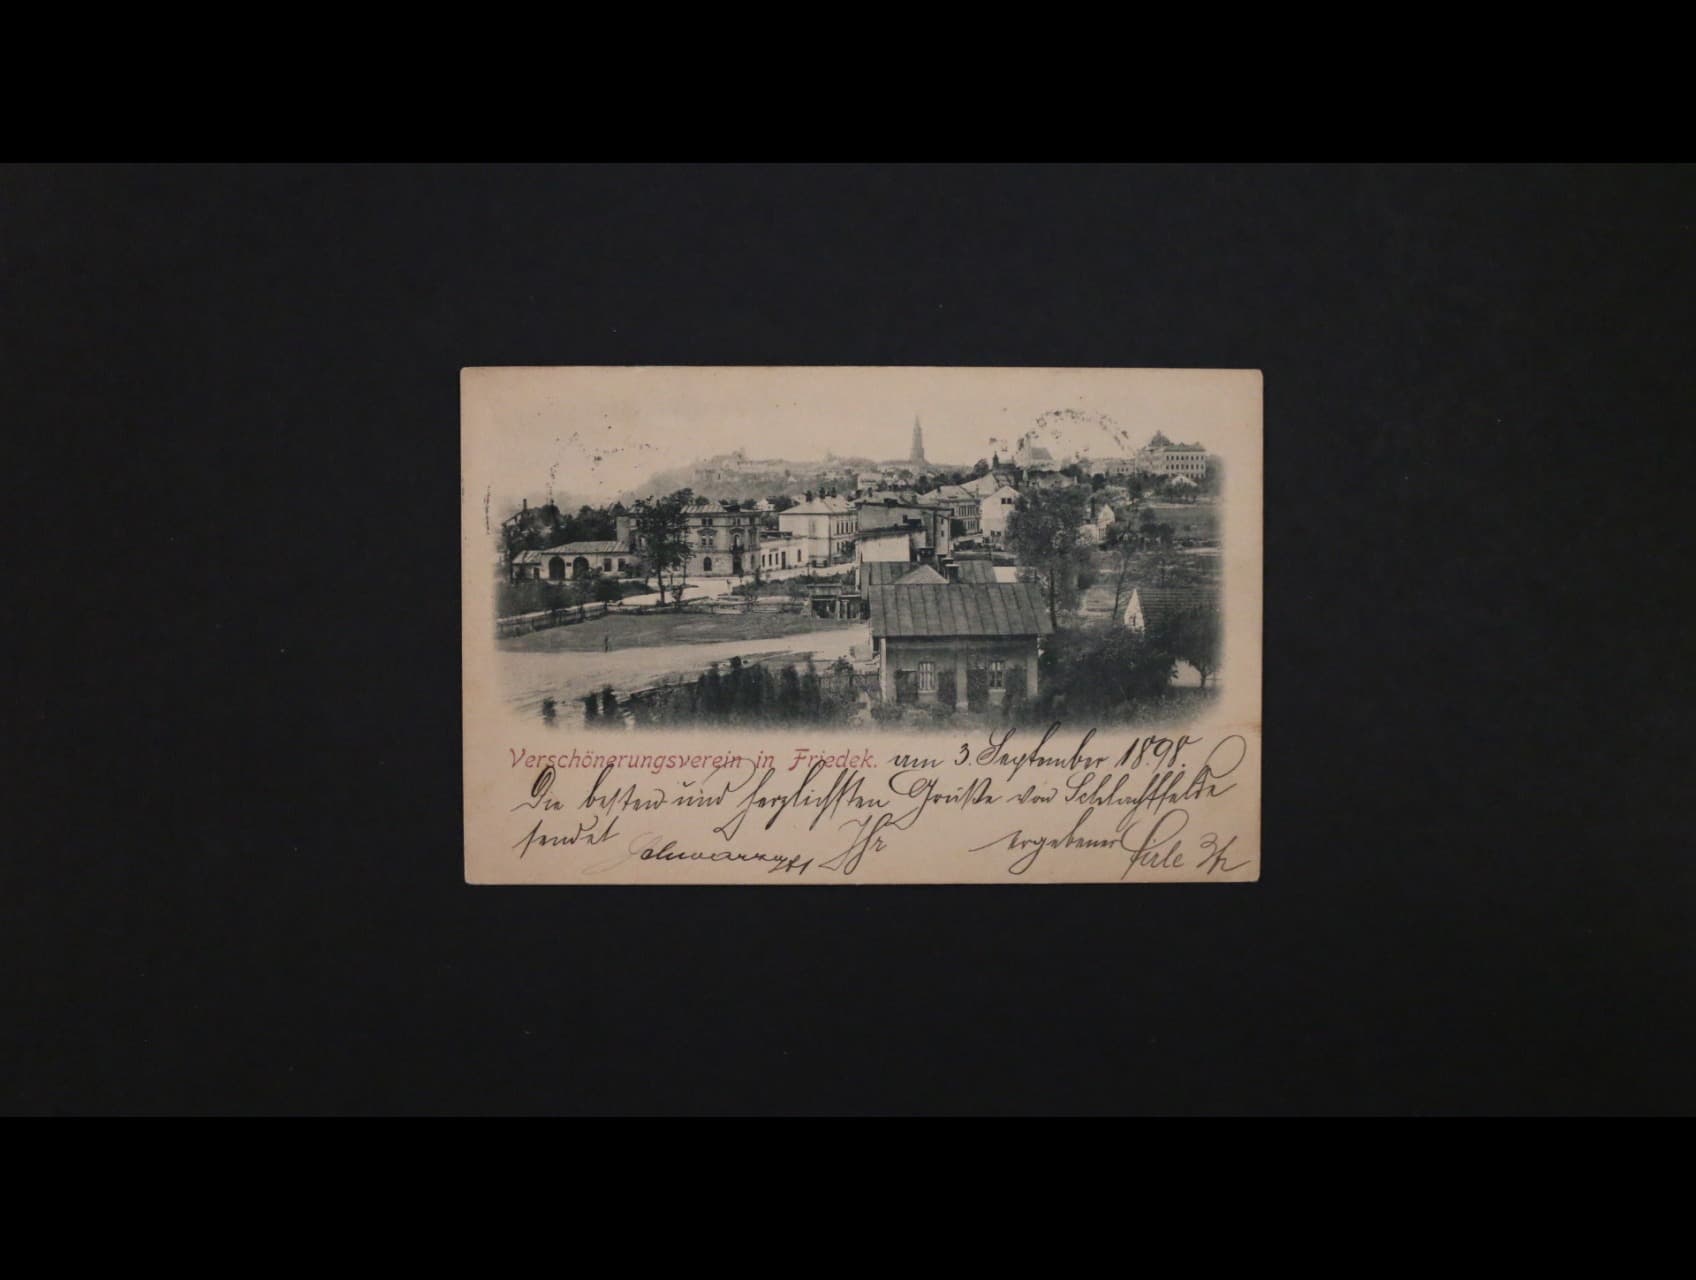 Verschönerungsverein in Friedek. am 3. September 1898.
Die besten und herzlichsten Grüße von Schlachtfelde
sendet Ihr ergebener